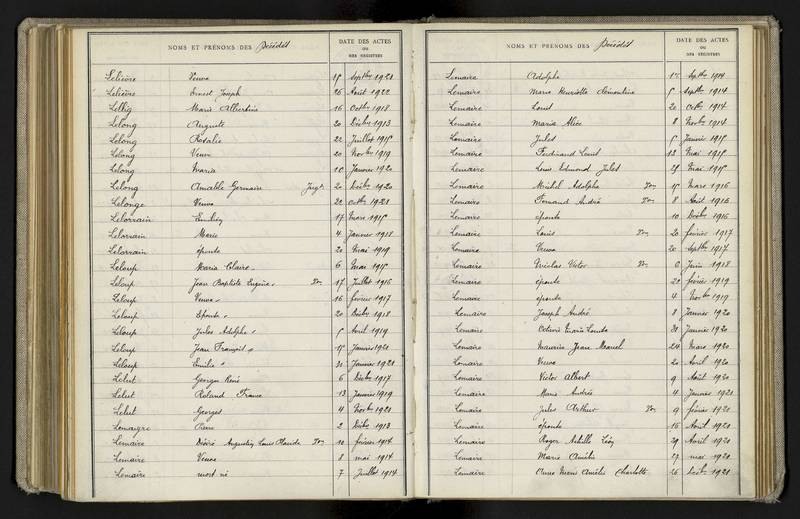 NOMS ET PRÉNOMS DES Décédés
DATE DES ACTES
OU
DES REGISTRES
Lelièvre Veuve 15 Septbre 1921
Lelièvre Ernest Joseph 26 Août 1922
Lellig Marie Albertine 16 Octbre 1918
Lelong Auguste 20 Décbre 1913
Lelong Rosalie 22 Juillet 1915
Lelong Veuve 20 Novbre 1919
Lelong Maria 10 Janvier 1920
Lelong Amable Germaine Jugt 20 Décbre 1920
Lelonge Veuve 22 Octbre 1921
Lelorrain Emilien 17 Mars 1915
Lelorrain Marie 4 Janvier 1918
Lelorrain épouse 20 Mai 1919
Leloup Marie Claire 6 Mai 1915
Leloup Jean Baptiste Eugène 17 Juillet 1916
Leloup Veuve 16 février 1917
Leloup Epouse 20 Décbre 1918
Leloup Jules Adolphe 5 Avril 1919
Leloup Jean François 15 Janvier 1921
Leloup Emilie 31 Janvier 1921
Lelut Georges René 6 Décbre 1917
Lelut Roland France 13 Janvier 1919
Lelut Georges 4 Novbre 1921
Lemaigre Pierre 2 Décbre 1913
Lemaire Désiré Augustin Louis Placide 10 février 1914
Lemaire Veuve 8 mai 1914
Lemaire mort né 7 Juillet 1914
NOMS ET PRÉNOMS DES Décédés
DATE DES ACTES
OU
DES REGISTRES
Lemaire Adolphe Septbre 1914
Lemaire Marie Henriette Clémentine 5 Septbre 1914
Lemaire Louis 20 Octbre 1914
Lemaire Maria Alice 8 Novbre 1914
Lemaire Jules 5 Janvier 1915
Lemaire Ferdinand Louis 12 Mai 1915
Lemaire Louis Edmond Jules 25 Mai 1915
Lemaire Michel Adolphe 15 Mars 1916
Lemaire Fernand André 8 Août 1916
Lemaire épouse 10 Décbre 1916
Lemaire Louis 20 février 1917
Lemaire Veuve 20 Septbre 1917
Lemaire Nicolas Victor 6 Juin 1918
Lemaire épouse 20 février 1919
Lemaire épouse 4 Novbre 1919
Lemaire Joseph André 8 Janvier 1920
Lemaire Octavie Marie 30 Janvier 1920
Lemaire Maurice Jean Marcel 24 Mars 1920
Lemaire Veuve 20 Avril 1920
Lemaire Victor Albert 9 Août 1920
Lemaire Marie Andrée 4 Janvier 1921
Lemaire Jules Arthur 9 février 1921
Lemaire épouse 16 Avril 1920
Lemaire Roger Achille Léon 29 Avril 1920
Lemaire Marie Amélie 27 mai 1920
Lemaire Anne Marie Amélie Charlotte 26 1921